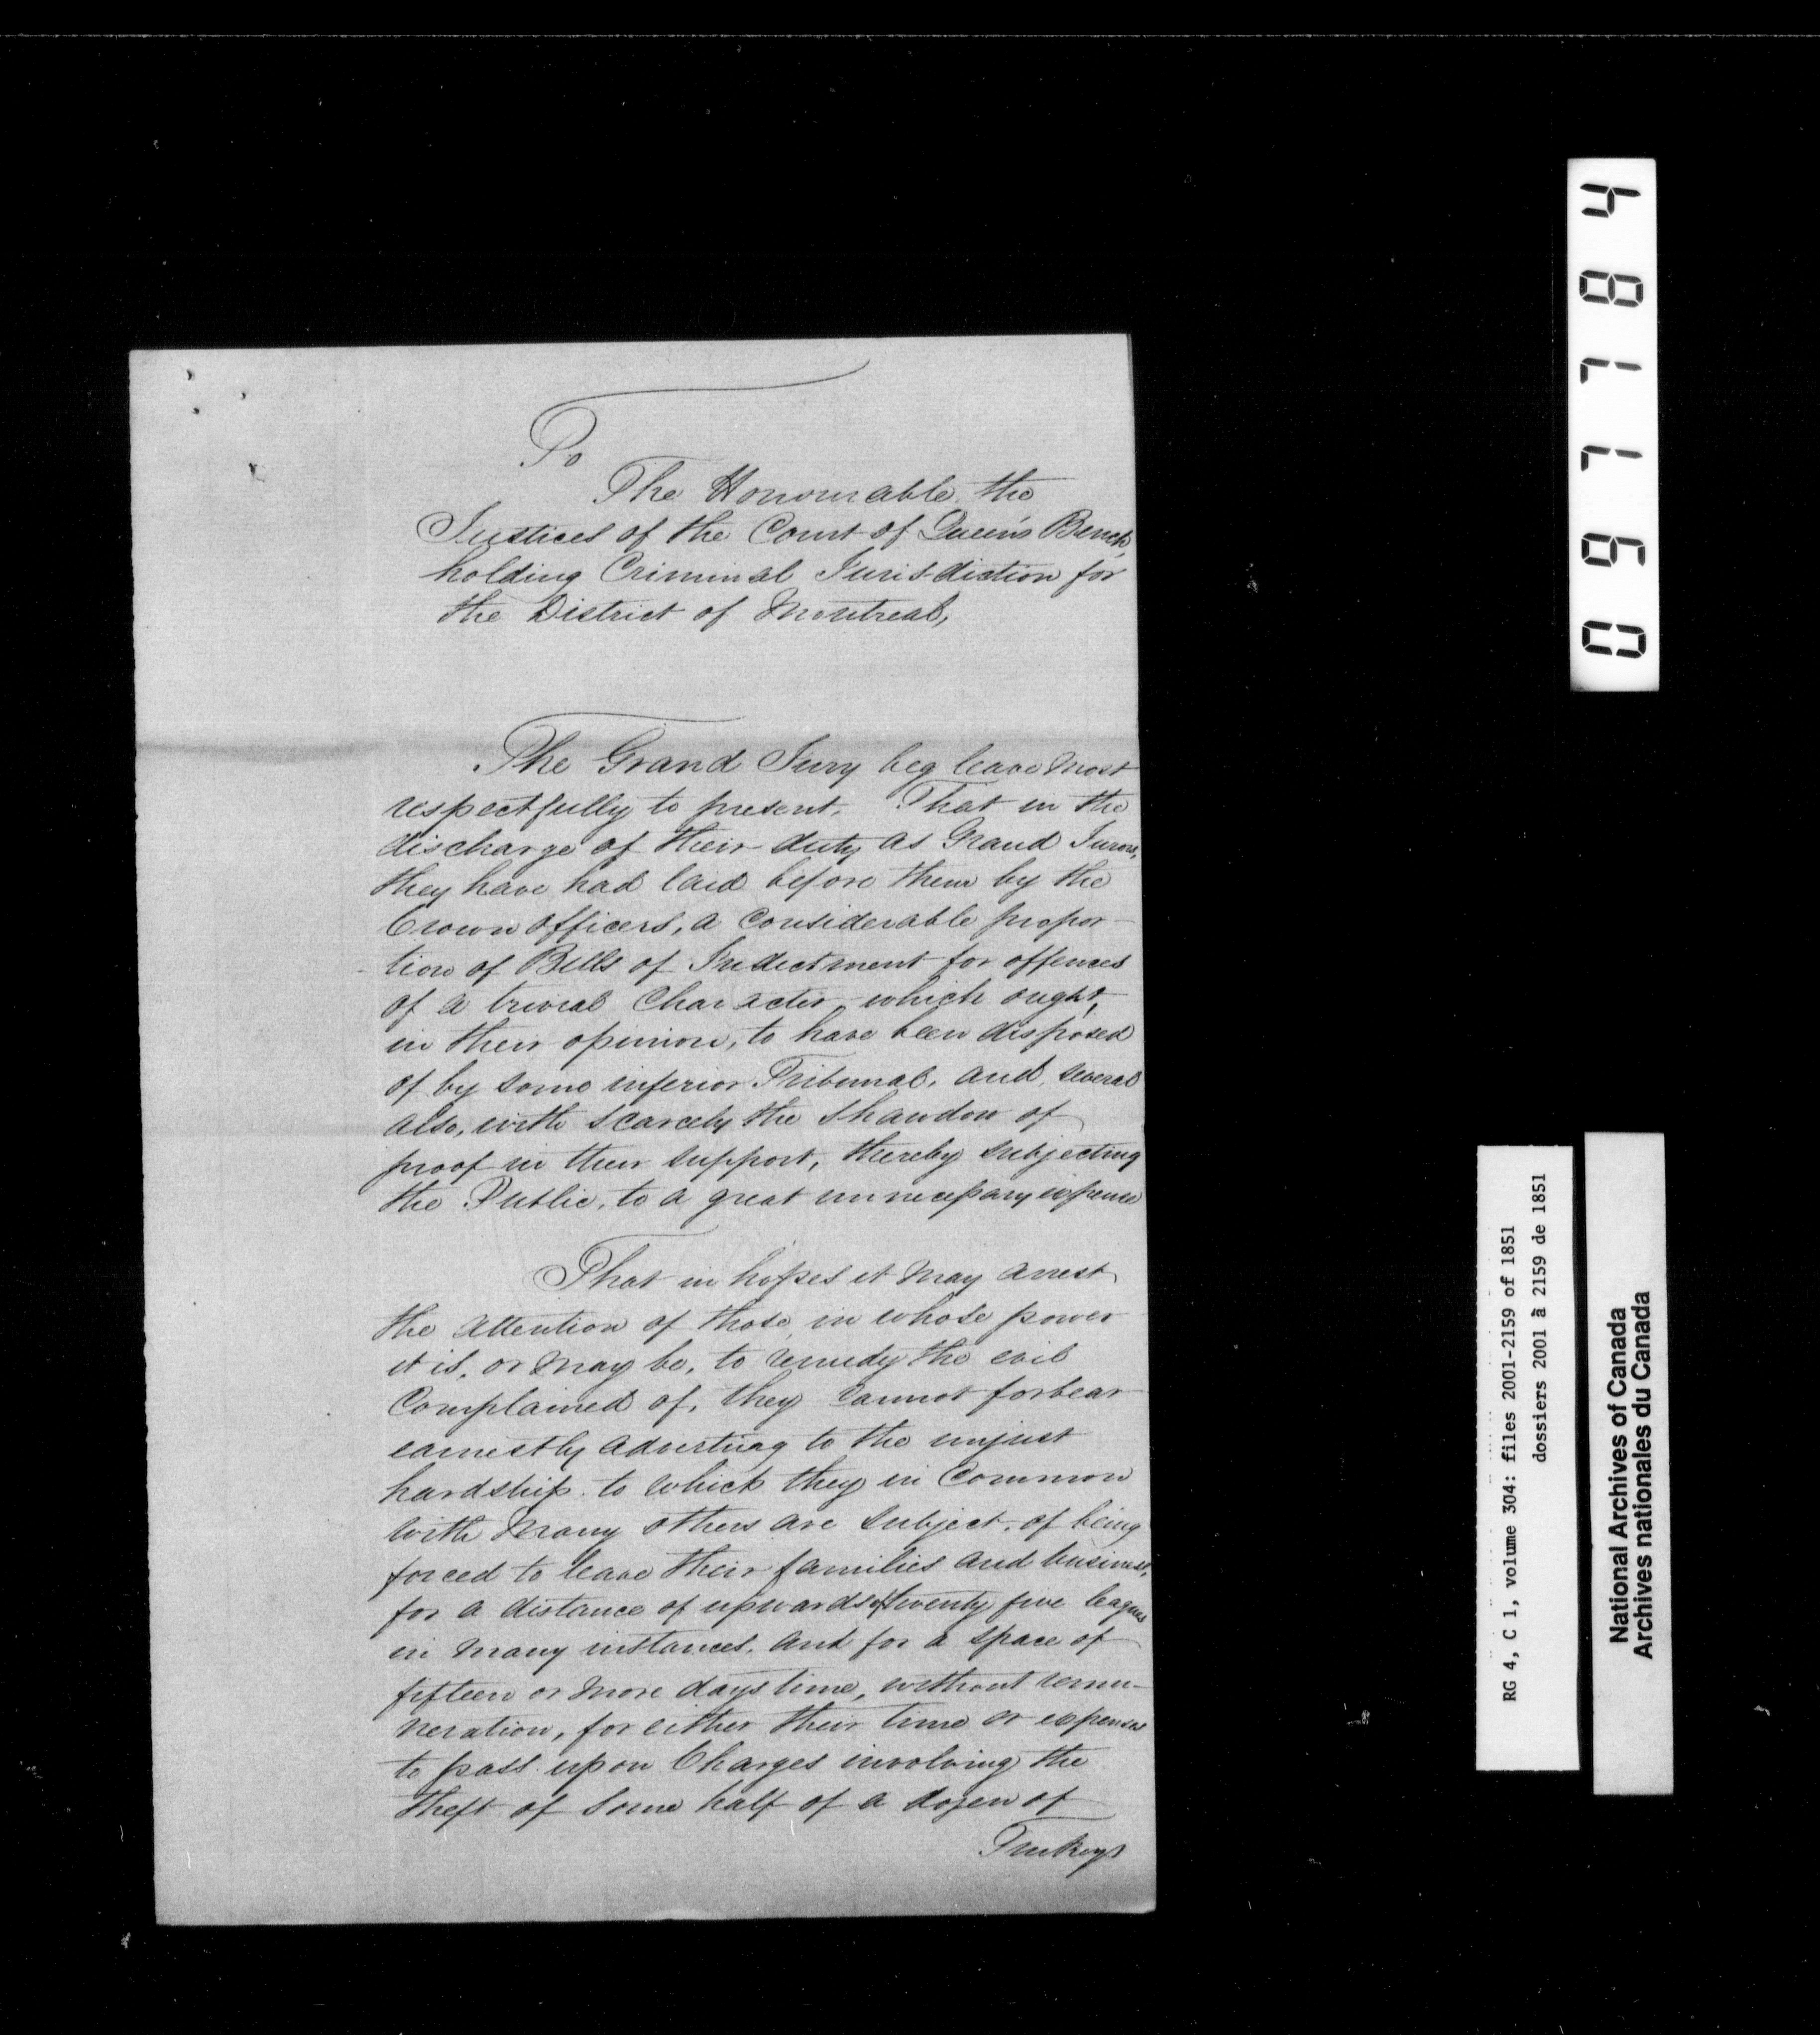 To
The Honourable the
Justices of the Court of Queen's Bench,
holding Criminal Jurisdiction for
the District of Montreal,
The Grand Jury beg leave most
respectfully to present. That in the
discharge of their duty as Grand Jurors,
they have had laid before them by the
Crown officers, a considerable propor-
-tion of Bills of Indictment for offences
of a trivial Character, which ought,
in their opinion, to have been disposed
of by some inferior Tribunal, and, several
also, with scarcely the shaudow of
proof in their support, thereby subjecting
the Public, to a great unnecessary expense
That in hopes it may arrest
the attention of those, in whose power
it is, or may be, to remedy the evil
Complained of, they cannot forbear
earnestly adverting to the unjust
hardship to which they in Common
with many others are subject, of being
forced to leave their families and business,
for a distance of upwards of twenty five leagues
in many instances, and for a space of
fifteen or more days time, without remu-
neration, for either their time or expenses
to pass upon Charges involving the
theft of some half of a dozen of
Turkeys
097784
RG 4, C 1, volume 304: files 2001-2159 of 1851
dossiers 2001 à 2159 de 1851
National Archives of Canada
Archives nationales du Canada